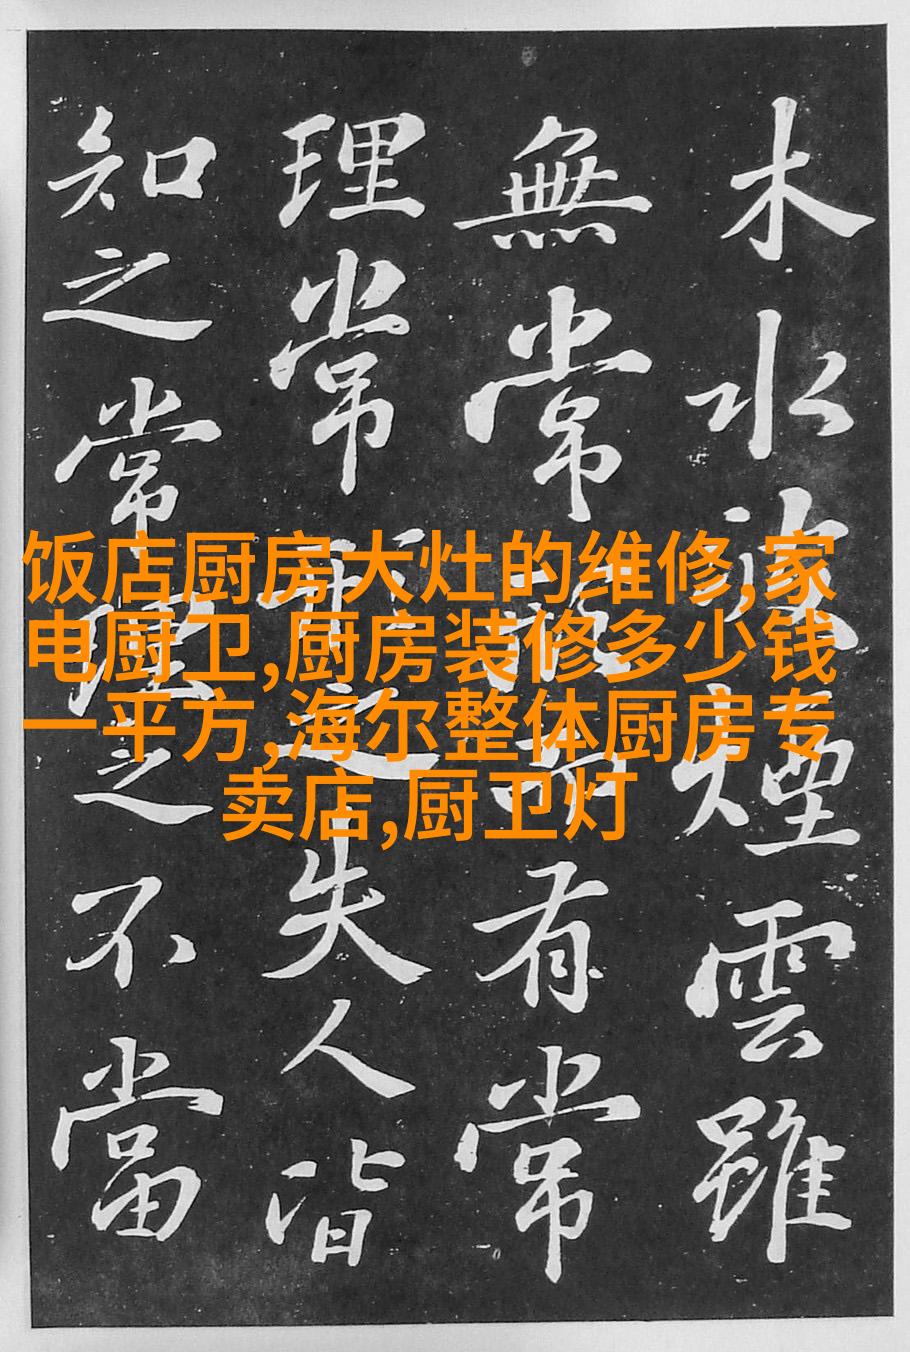 木水波煙雲雖
無常形而有常
理常形之失人皆
知之常理之不當
饭店厨房大灶的维修,家
电厨卫,厨房装修多少钱
一平方,海尔整体厨房专
卖店,厨卫灯